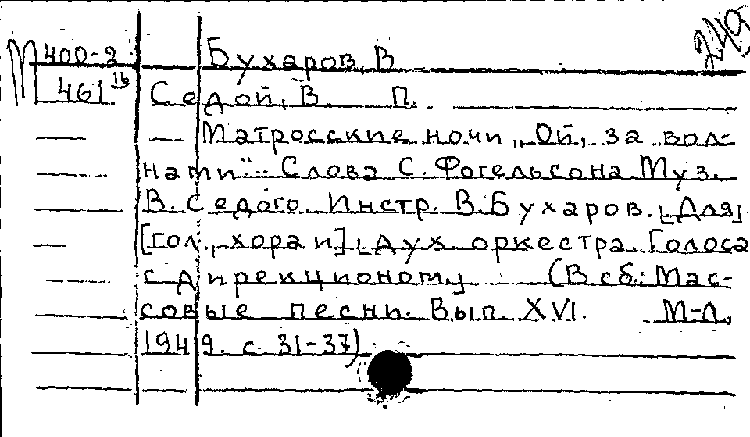 249
М 400-2 Бухаров, В
461 16 Седой, В. П.
— Матросские ночи „Ой, за вол-
нами"... Слова С. Фогельсона Муз.
В. Седого. Инстр. В. Бухаров. [Для]
[гол., хора и] дух. оркестра. Голоса
с дирекционом (В сб.: Мас-
совые песни. Вып. XVI. М-Л,
1949. с. 31-37)